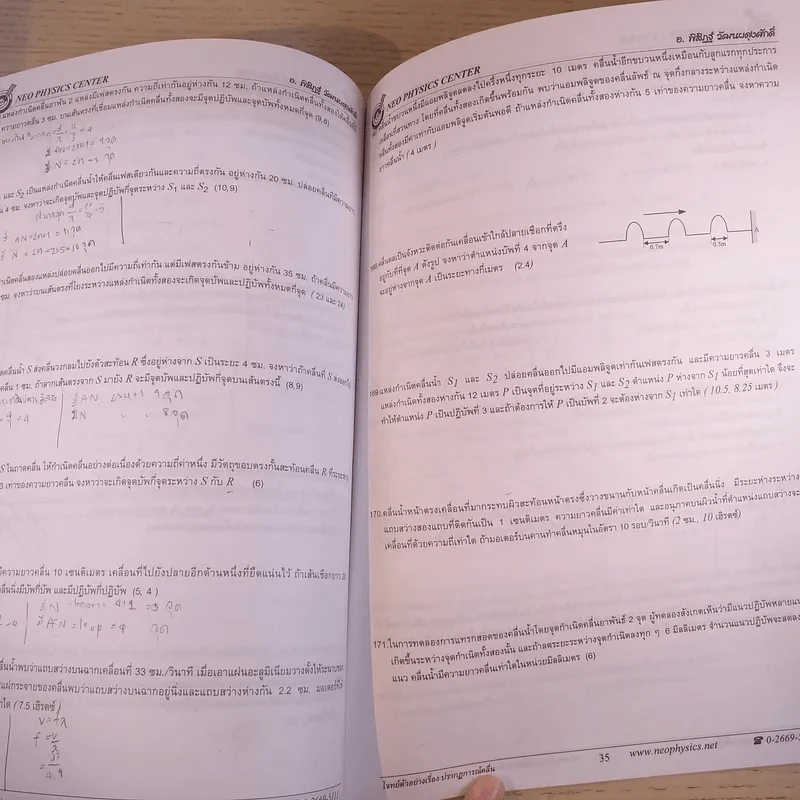 NEO PHYSICS CENTER
อ. พิสิฏฐ์ วัฒนผดุงศักดิ์
แหล่งกำเนิดคลื่นอาพัน 2 แหล่งมีเฟสตรงกัน ความถี่เท่ากันอยู่ห่างกัน 12 ซม. ถ้าแหล่งกำเนิดคลื่นทั้งสองให้คลื่นที่มี
ความยาวคลื่น 3 ซม. บนเส้นตรงที่เชื่อมแหล่งกำเนิดคลื่นทั้งสองจะมีจุดปฏิบัพและจุดบัพทั้งหมดกี่จุด (9,8)
AN=2n+1= 9 จุด
N=2n = 8 จุด
และ S2 เป็นแหล่งกำเนิดคลื่นน้ำให้คลื่นเฟสเดียวกันและความถี่ตรงกัน อยู่ห่างกัน 20 ซม. ปล่อยคลื่นที่มีความยาว
4 ซม. จงหาว่าจะเกิดจุดบัพและจุดปฏิบัพกี่จุดระหว่าง S1 และ S2 (10,9)
AN=2n+1 = 11 จุด
N = 2n = 2x5=10 จุด
กำเนิดคลื่นสองแหล่งปล่อยคลื่นออกไปมีความถี่เท่ากัน แต่มีเฟสตรงกันข้าม อยู่ห่างกัน 35 ซม. ถ้าคลื่นมีความยาว
ซม. จงหาว่าบนเส้นตรงที่โยงระหว่างแหล่งกำเนิดทั้งสองจะเกิดจุดบัพและปฏิบัพทั้งหมดกี่จุด ( 23 และ 24)
คลื่นน้ำ S ส่งคลื่นวงกลมไปยังตัวสะท้อน R ซึ่งอยู่ห่างจาก S เป็นระยะ 4 ซม. จงหาว่าถ้าคลื่นที่ S
คลื่น 1 ซม. ถ้าลากเส้นตรงจาก S มายัง R จะมีจุดบัพและปฏิบัพกี่จุดบนเส้นตรงนี้ (8,9)
AN 2x4+1 9 จุด
N 8 จุด
S ในถาดคลื่น ให้กำเนิดคลื่นอย่างต่อเนื่องด้วยความถี่ค่าหนึ่ง มีวัตถุขอบตรงกั้นสะท้อนคลื่น R ที่ระยะห่าง
3 เท่าของความยาวคลื่น จงหาว่าจะเกิดจุดบัพกี่จุดระหว่าง S กับ R (6)
มีความยาวคลื่น 10 เซนติเมตร เคลื่อนที่ไปยังปลายอีกด้านหนึ่งที่ยึดแน่นไว้ ถ้าเส้นเชือกยาว 20
คลื่นนิ่งมีบัพกี่บัพ และมีปฏิบัพกี่ปฏิบัพ (5, 4 )
4+1 = 5 จุด
AN = loop = 4 จุด
คลื่นน้ำพบว่าแถบสว่างบนฉากเคลื่อนที่ 33 ซม./วินาที เมื่อเอาแผ่นอะลูมิเนียมวางตั้งให้ระนาบของ
แผ่กระจายของคลื่นพบว่าแถบสว่างบนฉากอยู่นิ่งและแถบสว่างห่างกัน 2.2 ซม. มอเตอร์ที่ใช้
(7.5 เฮิรตซ์ )
v = fλ
f = v/λ
= 33/4.4
NEO PHYSICS CENTER
อ. พิสิฏฐ์ วัฒนผดุงศักดิ์
คลื่นน้ำขบวนหนึ่งมีแอมพลิจูดลดลงไปครึ่งหนึ่งทุกระยะ 10 เมตร คลื่นน้ำอีกขบวนหนึ่งเหมือนกับลูกแรกทุกประการ
เคลื่อนที่สวนทาง โดยที่คลื่นทั้งสองเกิดขึ้นพร้อมกัน พบว่าแอมพลิจูดของคลื่นลัพธ์ ณ จุดกึ่งกลางระหว่างแหล่งกำเนิด
คลื่นทั้งสองมีค่าเท่ากับแอมพลิจูดเริ่มต้นพอดี ถ้าแหล่งกำเนิดคลื่นทั้งสองห่างกัน 5 เท่าของความยาวคลื่น จงหาความ
ยาวคลื่นน้ำ ( 4 เมตร )
168.คลื่นดลเป็นจังหวะติดต่อกันเคลื่อนเข้าใกล้ปลายเชือกที่ตรึง
อยู่กับที่ที่จุด A ดังรูป จงหาว่าตำแหน่งบัพที่ 4 จากจุด A
จะอยู่ห่างจากจุด A เป็นระยะทางกี่เมตร (2.4)
0.7m
0.5m
A
169.แหล่งกำเนิดคลื่นน้ำ S1 และ S2 ปล่อยคลื่นออกไปมีแอมพลิจูดเท่ากันเฟสตรงกัน และมีความยาวคลื่น 3 เมตร
แหล่งกำเนิดทั้งสองห่างกัน 12 เมตร P เป็นจุดที่อยู่ระหว่าง S1 และ S2 ตำแหน่ง P ห่างจาก S1 น้อยที่สุดเท่าใด จึงจะ
ทำให้ตำแหน่ง P เป็นปฏิบัพที่ 3 และถ้าต้องการให้ P เป็นบัพที่ 2 จะต้องห่างจาก S1 เท่าใด ( 10.5, 8.25 เมตร )
170.คลื่นน้ำหน้าตรงเคลื่อนที่มากระทบผิวสะท้อนหน้าตรงซึ่งวางขนานกับหน้าคลื่นเกิดเป็นคลื่นนิ่ง มีระยะห่างระหว่าง
แถบสว่างสองแถบที่ติดกันเป็น 1 เซนติเมตร ความยาวคลื่นมีค่าเท่าใด และอนุภาคบนผิวน้ำที่ตำแหน่งแถบสว่างจะ
เคลื่อนที่ด้วยความถี่เท่าใด ถ้ามอเตอร์บนคานทำคลื่นหมุนในอัตรา 10 รอบ/วินาที (2 ซม., 10 เฮิรตซ์)
171.ในการทดลองการแทรกสอดของคลื่นน้ำโดยจุดกำเนิดคลื่นอาพันธ์ 2 จุด ผู้ทดลองสังเกตเห็นว่ามีแนวปฏิบัพหลายแนว
เกิดขึ้นระหว่างจุดกำเนิดทั้งสองนั้น และถ้าลดระยะระหว่างจุดกำเนิดลงทุก ๆ 6 มิลลิเมตร จำนวนแนวปฏิบัพจะลดลง
แนว คลื่นน้ำมีความยาวคลื่นเท่าใดในหน่วยมิลลิเมตร (6)
โจทย์ตัวอย่างเรื่อง ปรากฏการณ์คลื่น
35
www.neophysics.net
☎ 0-2669-5